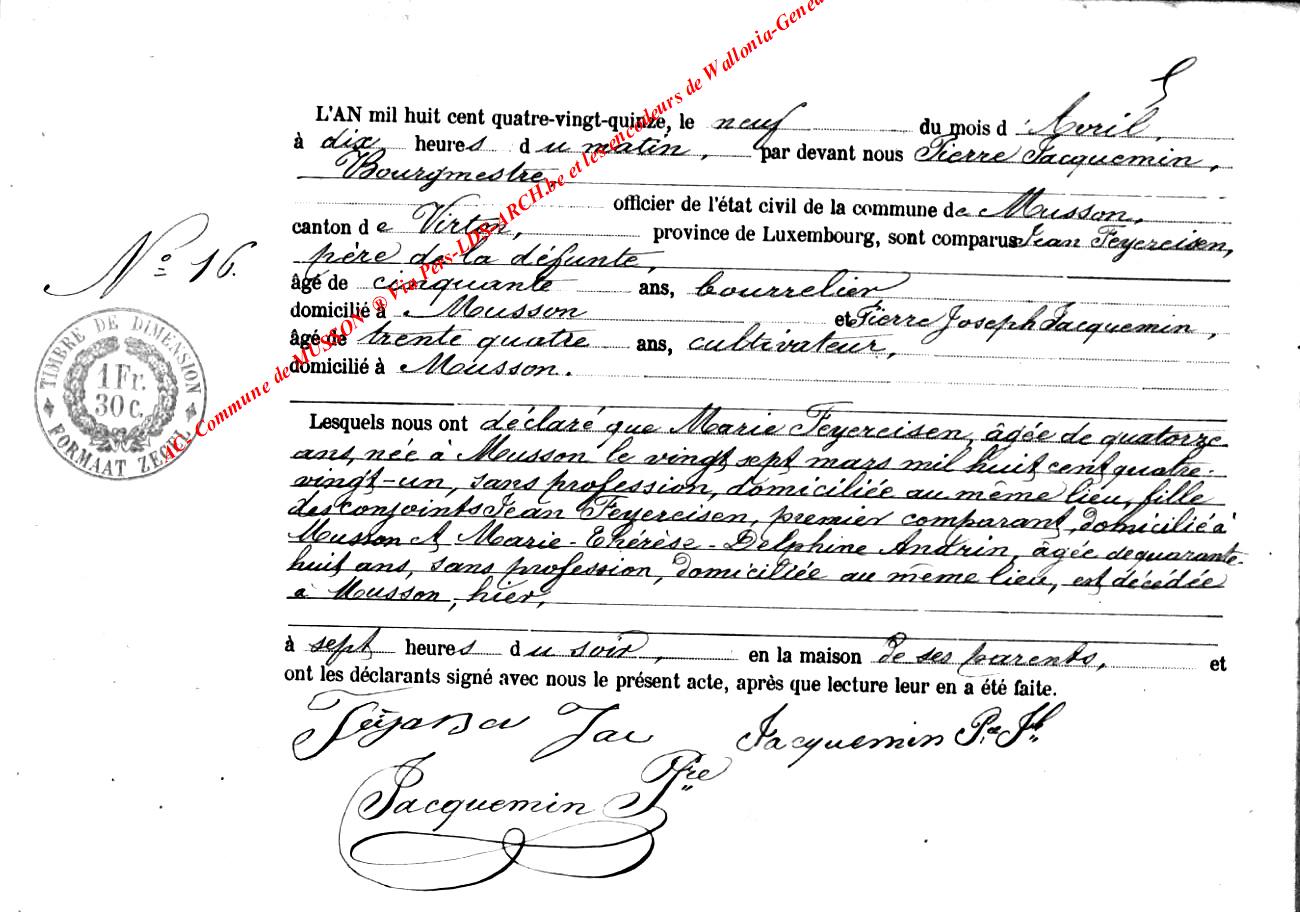 L'AN mil huit cent quatre-vingt-quinze, le neuf du mois d'Avril,
à dix heures du matin, par devant nous Pierre Jacquemin,
Bourgmestre,
officier de l'état civil de la commune de Musson,
canton de Virton, province de Luxembourg, sont comparus Jean Feyereisen,
père de la défunte,
âgé de cinquante ans, bourrelier
domicilié à Musson et Pierre Joseph Jacquemin,
âgé de trente quatre ans, cultivateur,
domicilié à Musson.
N° 16.
TIMBRE DE DIMENSION
1 Fr.
30 C.
FORMAAT ZEGEL
AC- Commune de MUSSON ® Via Pers-LDS-ARCH.be et les encodeurs de Wallonia-Genea
Lesquels nous ont déclaré que Marie Feyereisen, âgée de quatorze
ans, née à Musson le vingt sept mars mil huit cent quatre-
vingt-un, sans profession, domiciliée au même lieu, fille
des conjoints Jean Feyereisen, premier comparant, domicilié à
Musson et Marie-Thérèse-Delphine Andrin, âgée de quarante-
huit ans, sans profession, domiciliée au même lieu, est décédée
à Musson, hier,
à sept heures du soir, en la maison de ses parents, et
ont les déclarants signé avec nous le présent acte, après que lecture leur en a été faite.
Jacquemin Pre Jh
Jacquemin Pfre